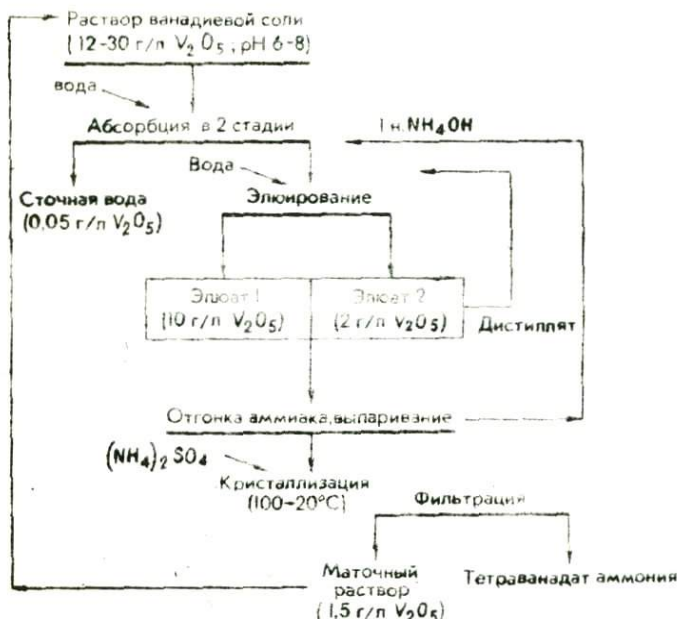 Раствор ванадиевой соли
(12-30 г/л V₂O₅; pH 6-8)
вода
Абсорбция в 2 стадии
1 н. NH₄OH
Вода
Сточная вода
(0,05 г/л V₂O₅)
Элюирование
Элюат 1
(10 г/л V₂O₅)
Элюат 2
(2 г/л V₂O₅)
Дистиллят
Отгонка аммиака, выпаривание
(NH₄)₂SO₄
Кристаллизация
(100-20°C)
Фильтрация
Маточный
раствор
(1,5 г/л V₂O₅)
Тетраванадат аммония